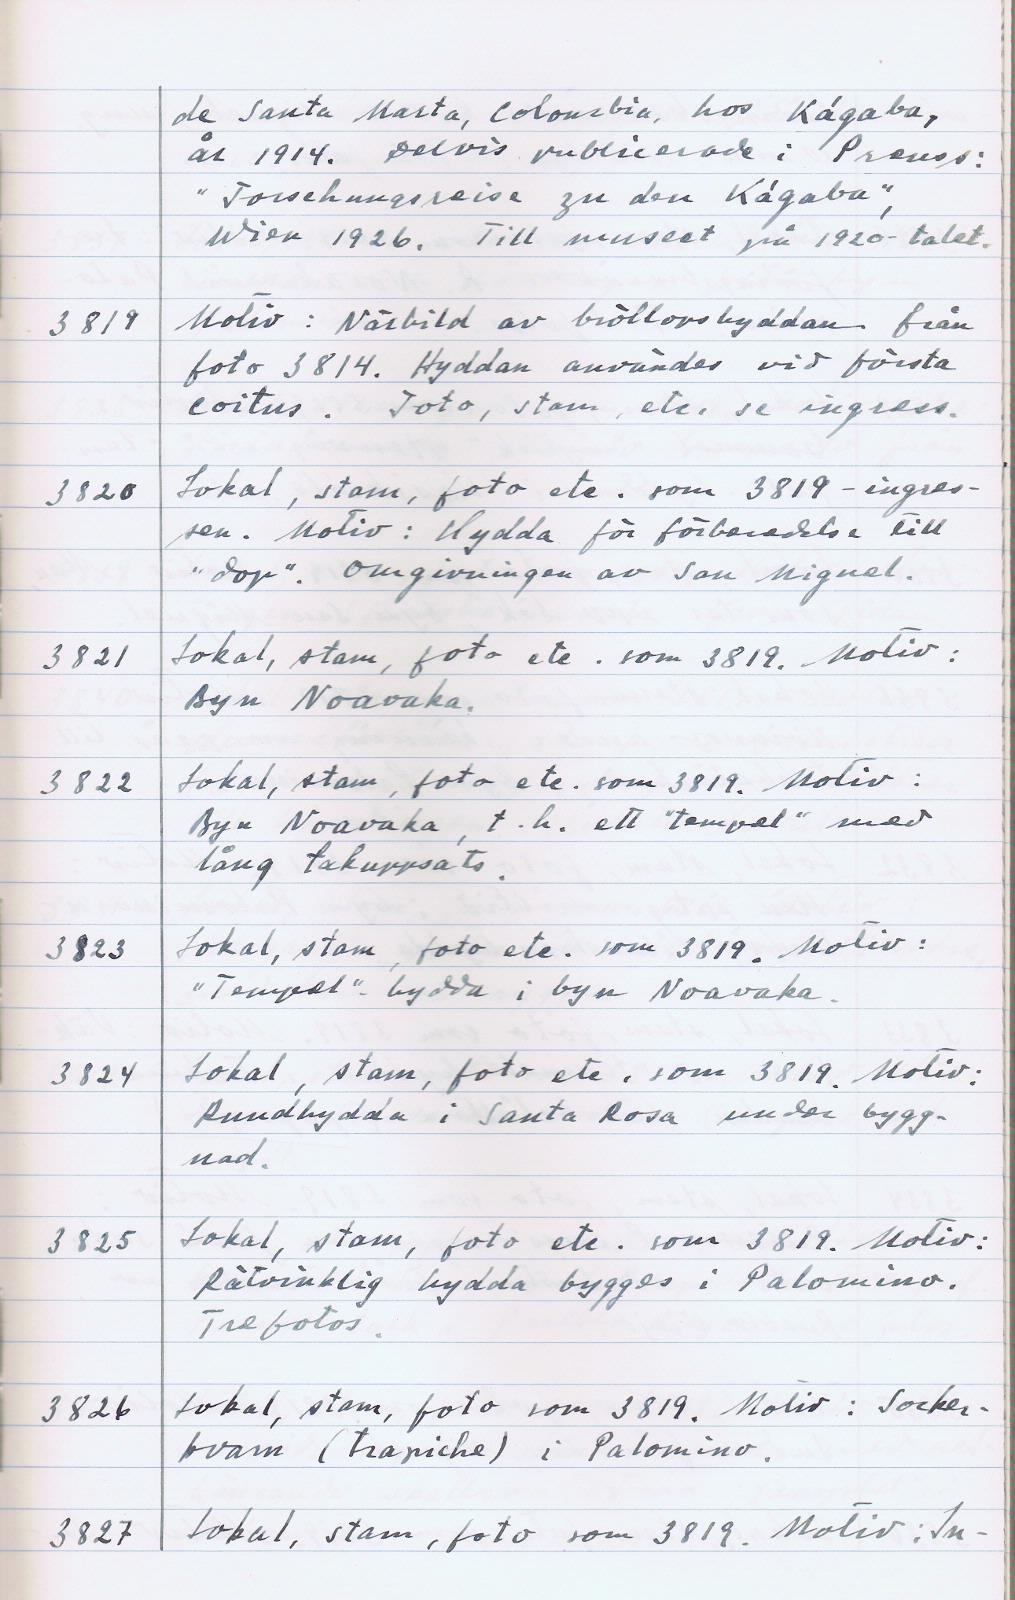 de Santa Marta, Colombia, hos Kágaba,
år 1914. Delvis publicerade i Preuss:
"Forschungsreise zu den Kágaba",
Wien 1926. Till museet på 1920-talet.
3819 Motiv: Närbild av bröllopshyddan från
foto 3814. Hyddan användes vid första
coitus. Foto, stam, etc. se ingress.
3820 Lokal, stam, foto etc. som 3819-ingres-
sen. Motiv: Hydda för förberedelse till
"dop". Omgivningen av San Miguel.
3821 Lokal, stam, foto etc. som 3819. Motiv:
Byn Noavaka.
3822 Lokal, stam, foto etc. som 3819. Motiv:
Byn Noavaka, t.h. ett "tempel" med
lång takuppsats.
3823 Lokal, stam, foto etc. som 3819. Motiv:
"Tempel"-hydda i byn Noavaka.
3824 Lokal, stam, foto etc. som 3819. Motiv:
Rundhydda i Santa Rosa under bygg-
nad.
3825 Lokal, stam, foto etc. som 3819. Motiv:
Rätvinklig hydda bygges i Palomino.
Tre fotos.
3826 Lokal, stam, foto som 3819. Motiv: Socker-
kvarn (trapiche) i Palomino.
3827 Lokal, stam, foto som 3819. Motiv: In-